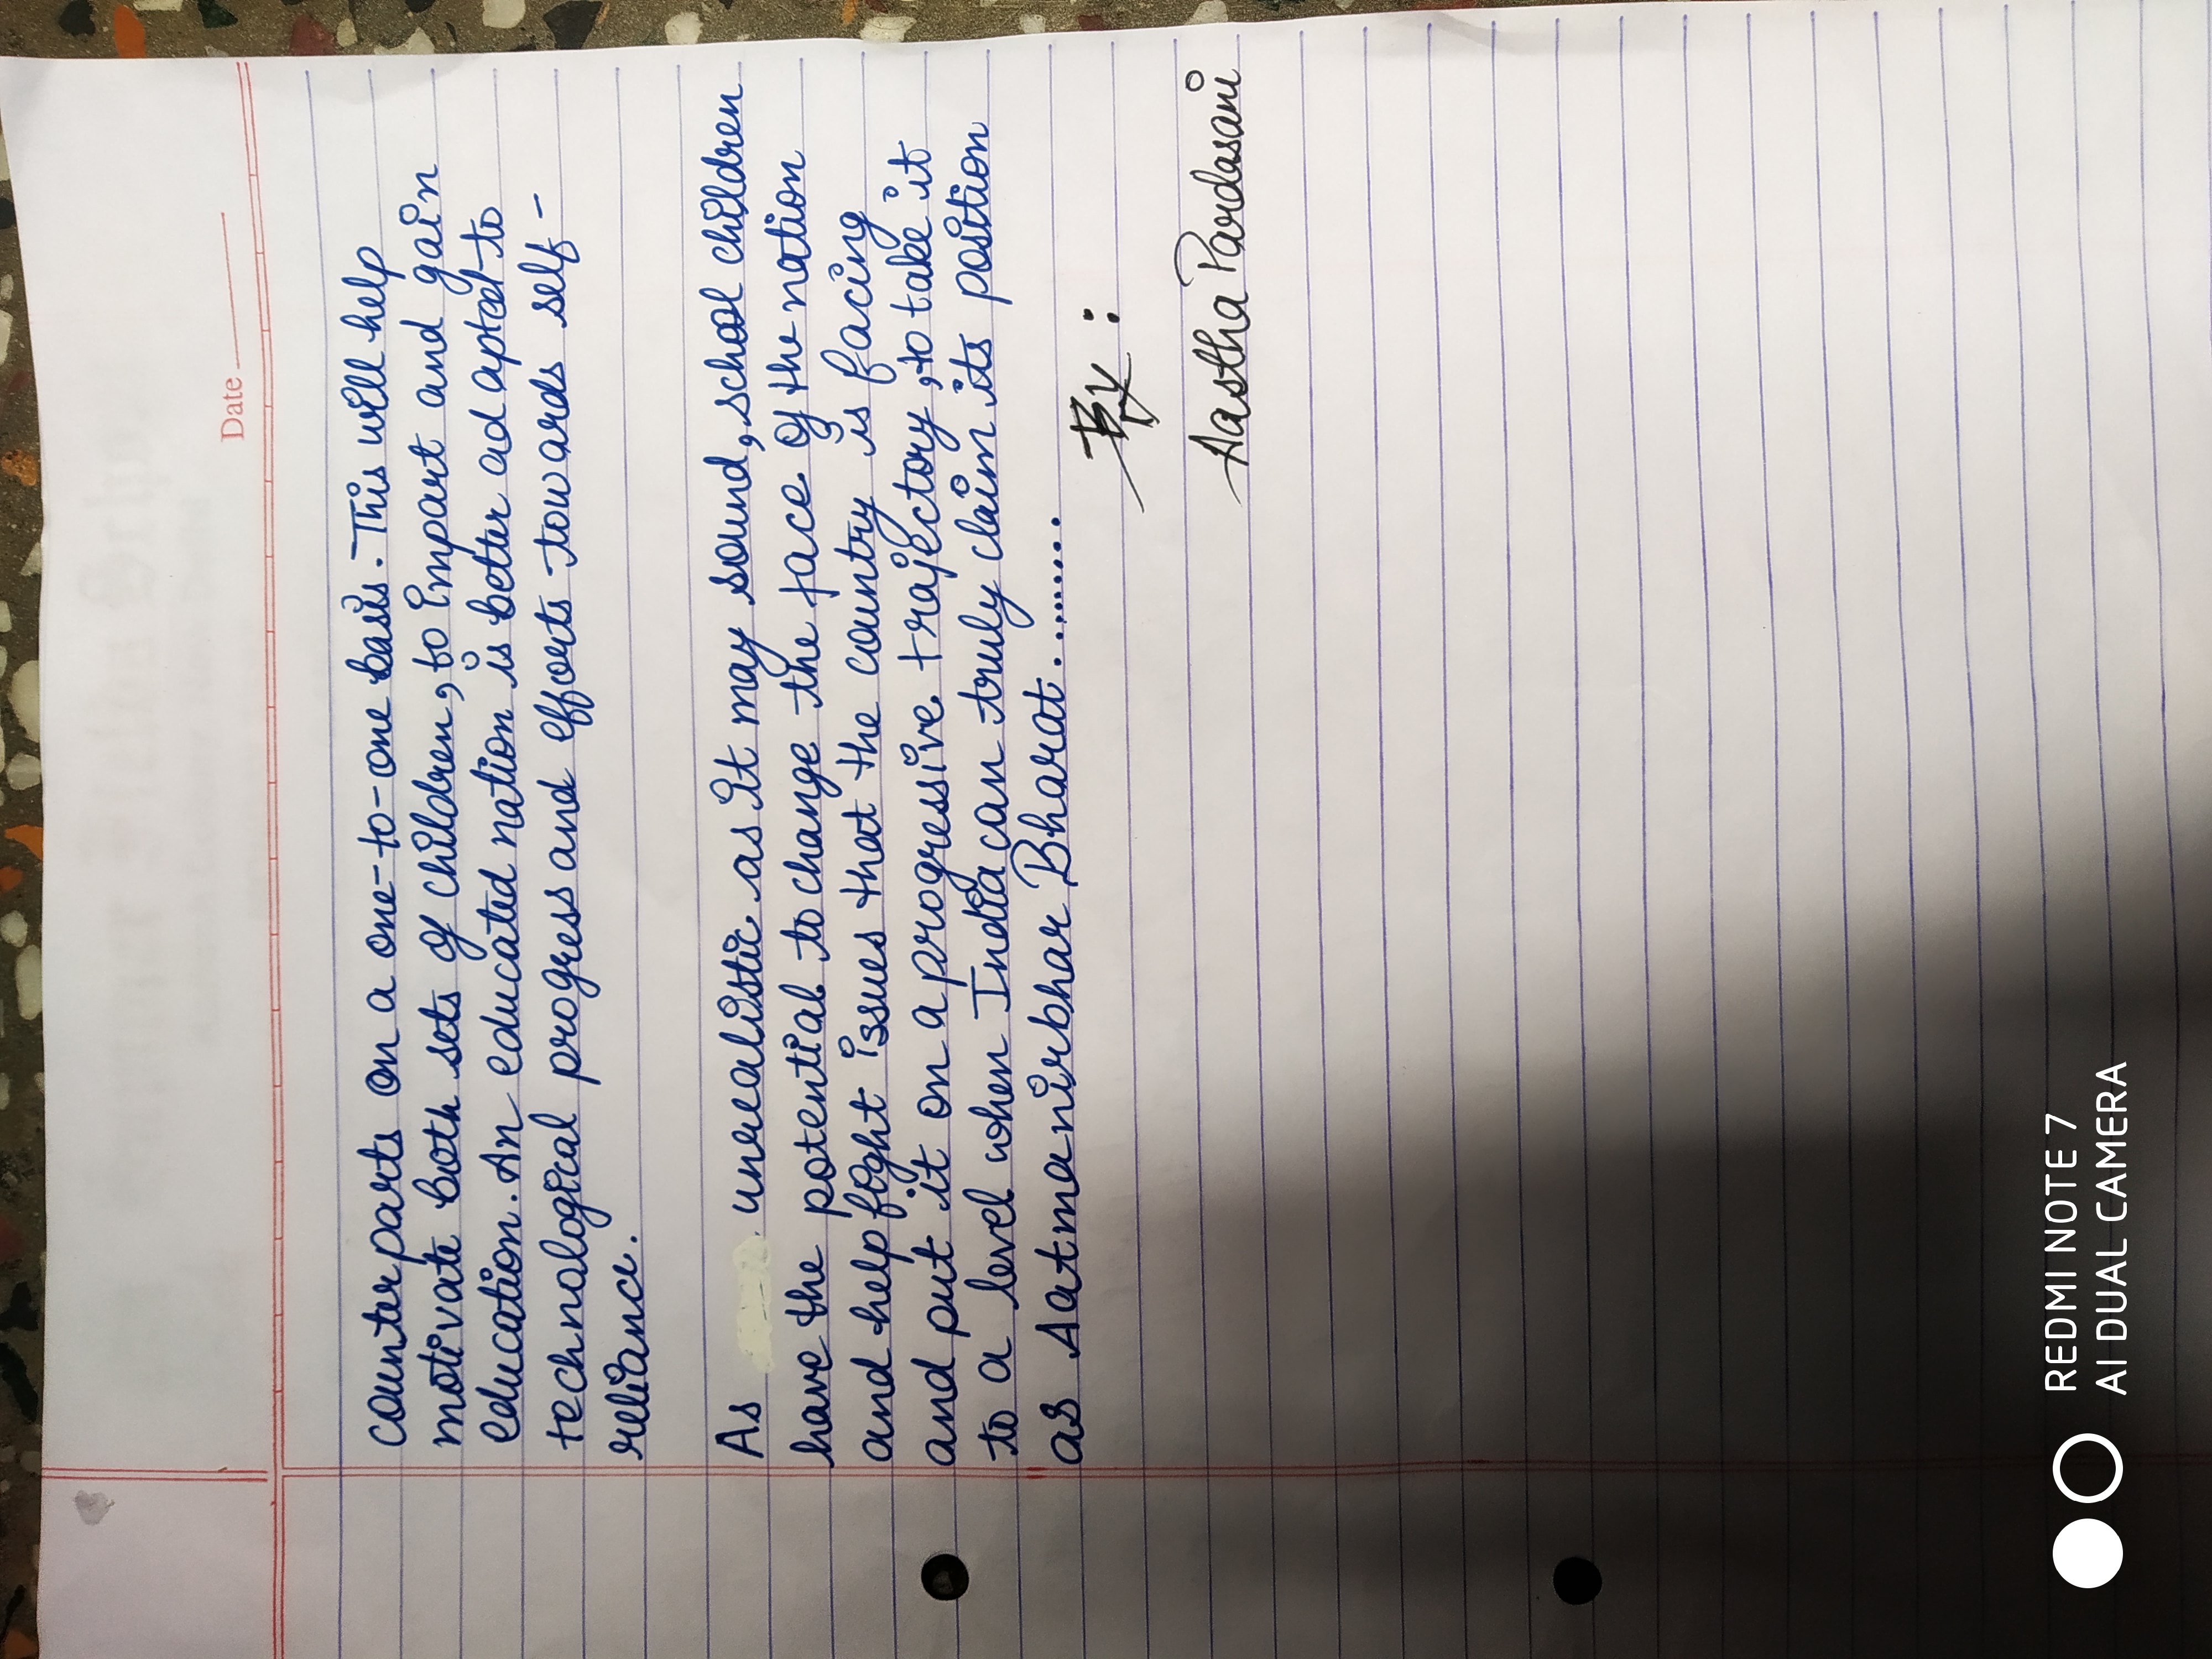 Date
counterparts on a one-to-one basis. This will help
motivate both sets of children, to impart and gain
education. An educated nation is better adapted to
technological progress and efforts towards self-
reliance.
As unrealistic as it may sound, school children
have the potential to change the face of the nation
and help fight issues that the country is facing
and put it on a progressive trajectory, to take it
to a level when India can truly claim its position
as Aatmanirbhar Bharat..........
By :
Aastha Pardasani
REDMI NOTE 7
AI DUAL CAMERA